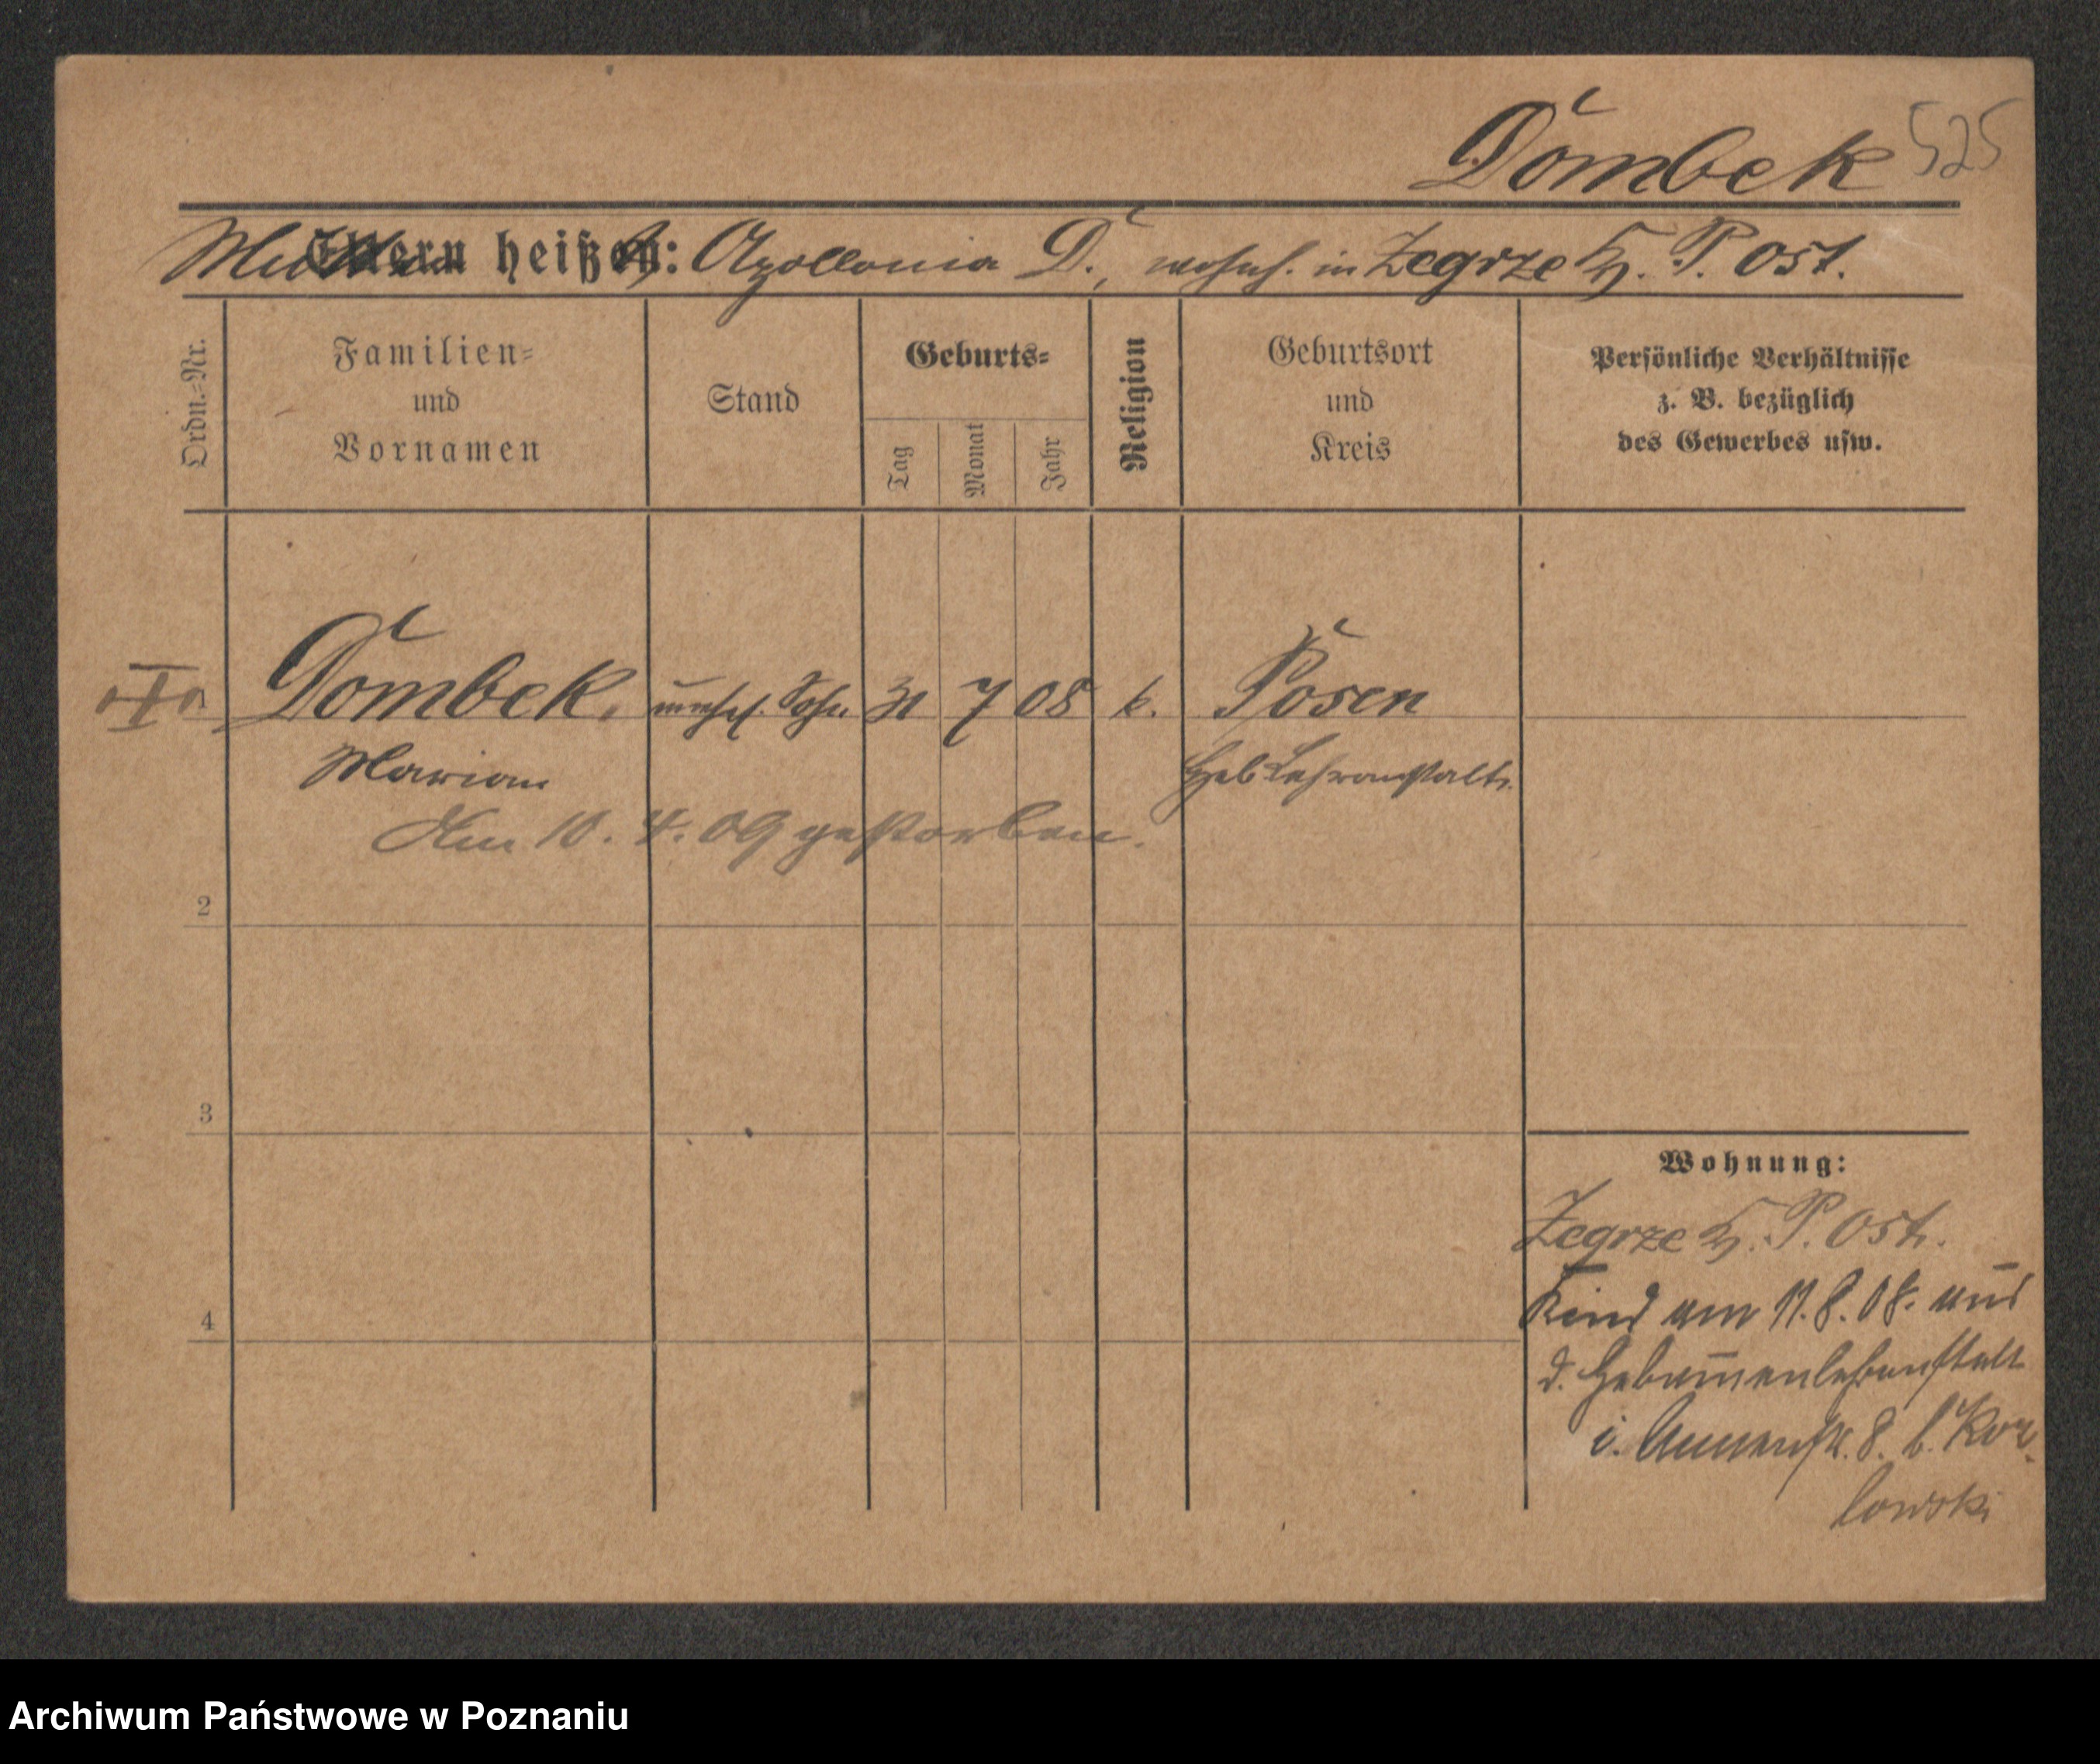 Dombek 525
Mutter heißt: Apollonia D., wohnh. in Zegrze Kr. P. Ost.
Ordn.=Nr.
Familien=
und
Vornamen
Stand
Geburts=
Tag
Monat
Jahr
Religion
Geburtsort
und
Kreis
Persönliche Verhältnisse
z. B. bezüglich
des Gewerbes usw.
1 Dombek, unehel. Sohn 31 7 08 k. Posen
Marian Heb Lehranstalt.
Am 10. 4. 09 gestorben.
2
3
Wohnung:
Zegrze Kr. P. Ost.
4
Kind am 11.8.08. aus
d. Hebammenlehranstalt
i. Annenstr. 8. b. Koz-
lowski
Archiwum Państwowe w Poznaniu